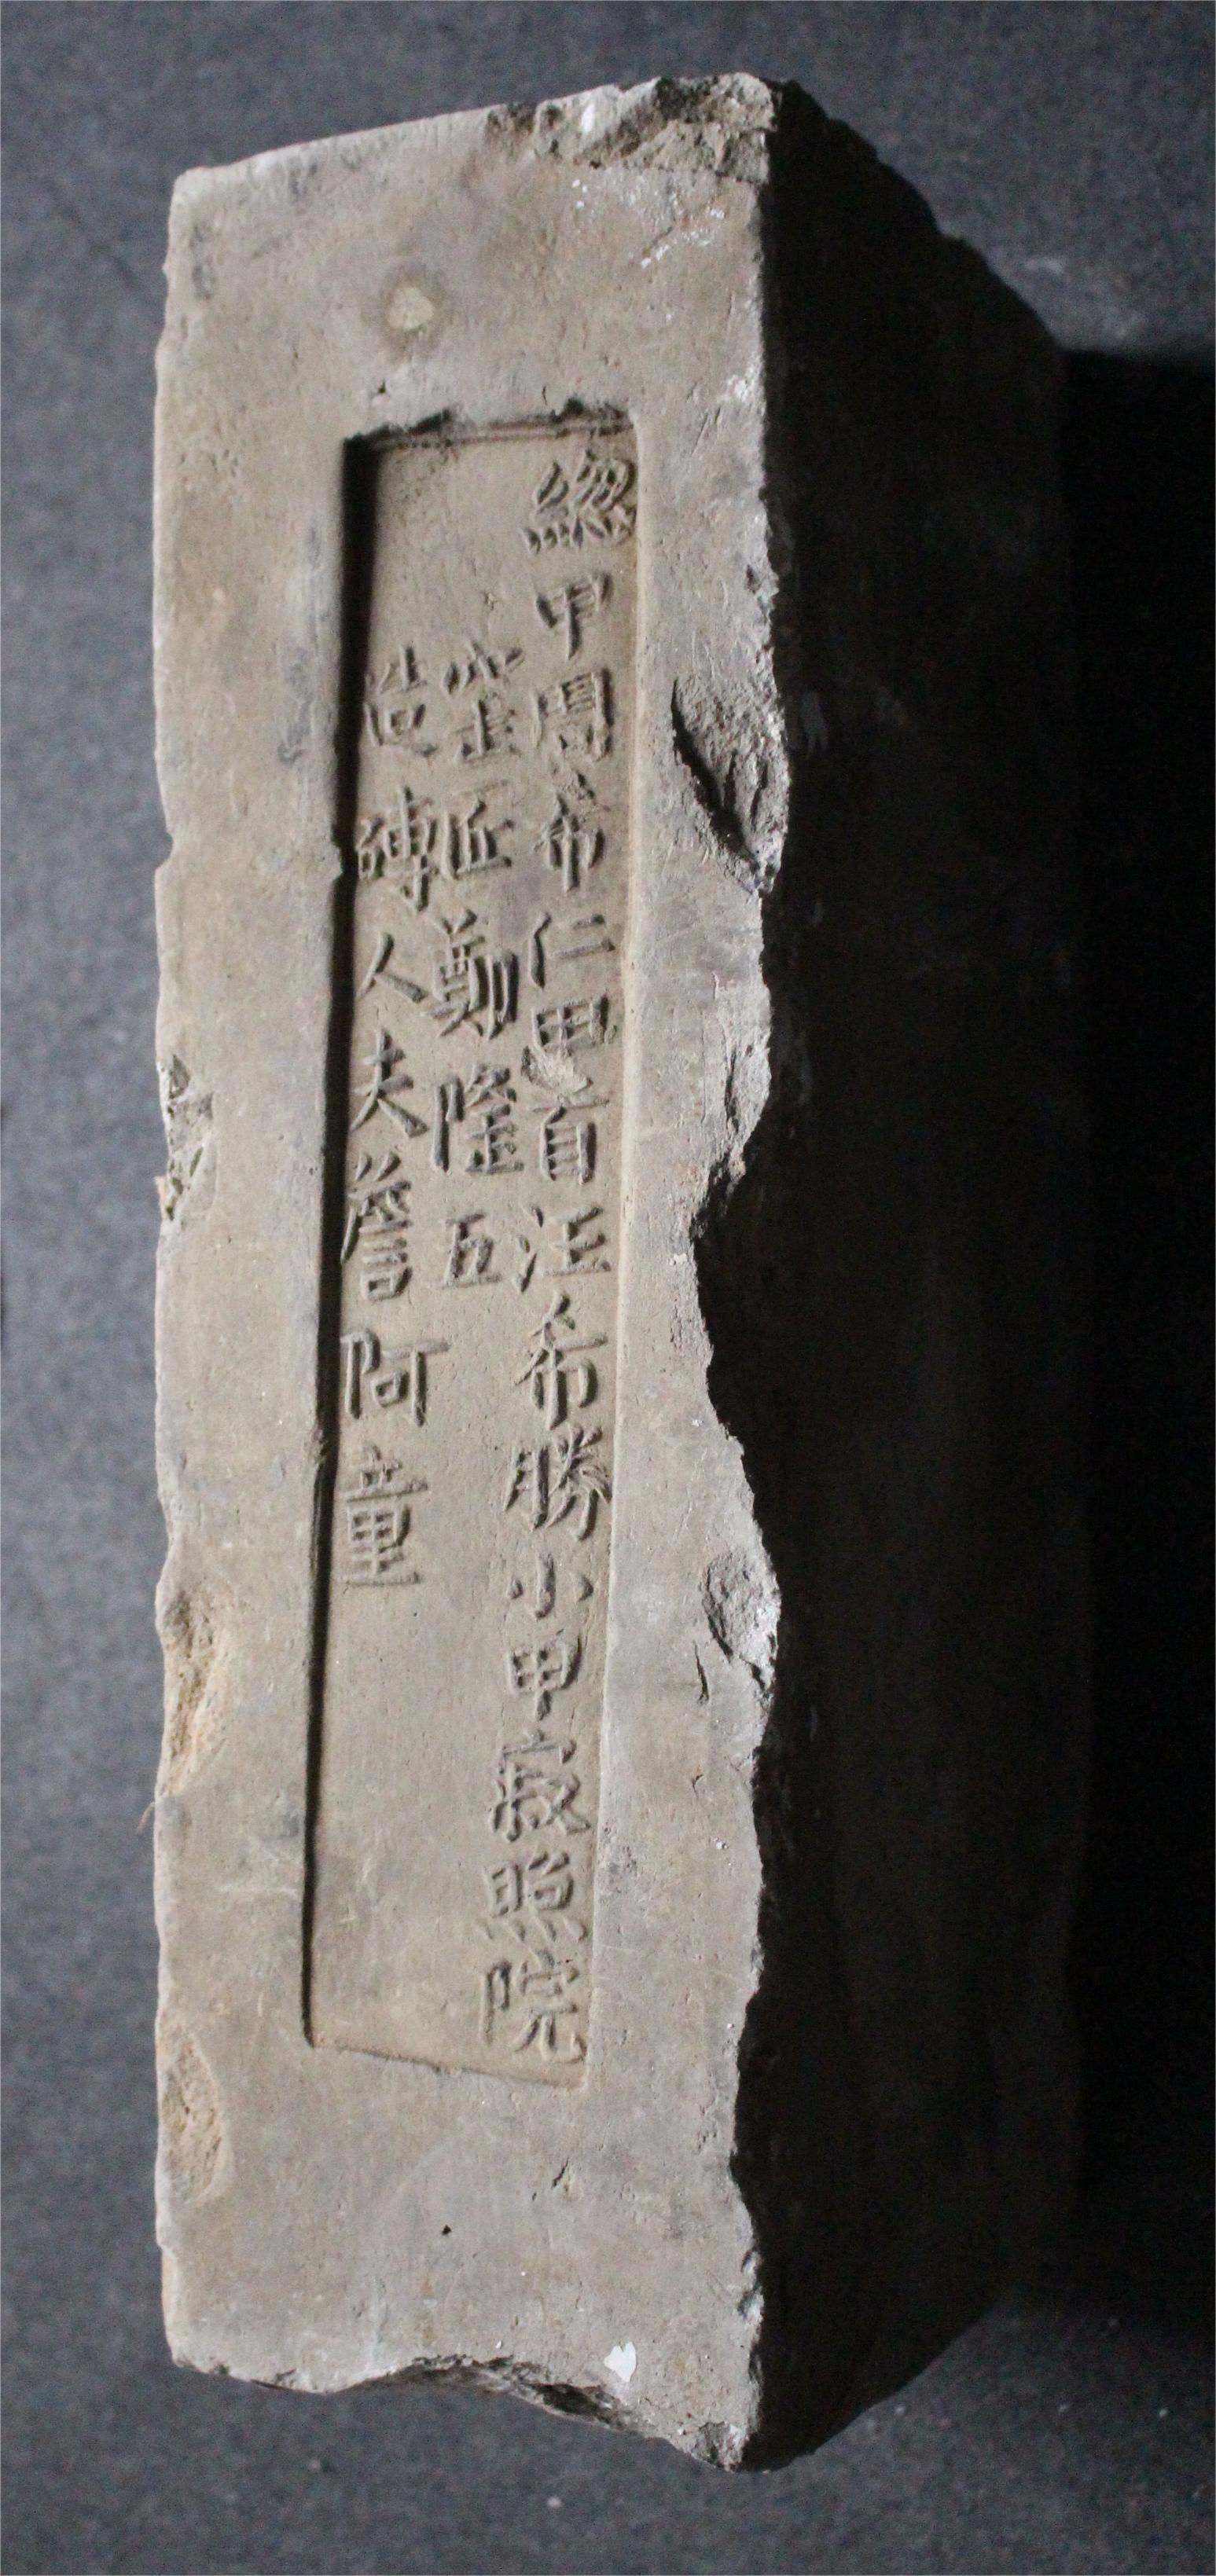 緫甲周希仁甲首汪希勝小甲寂照院
窑匠鄭隆五
造磚人夫詹阿童